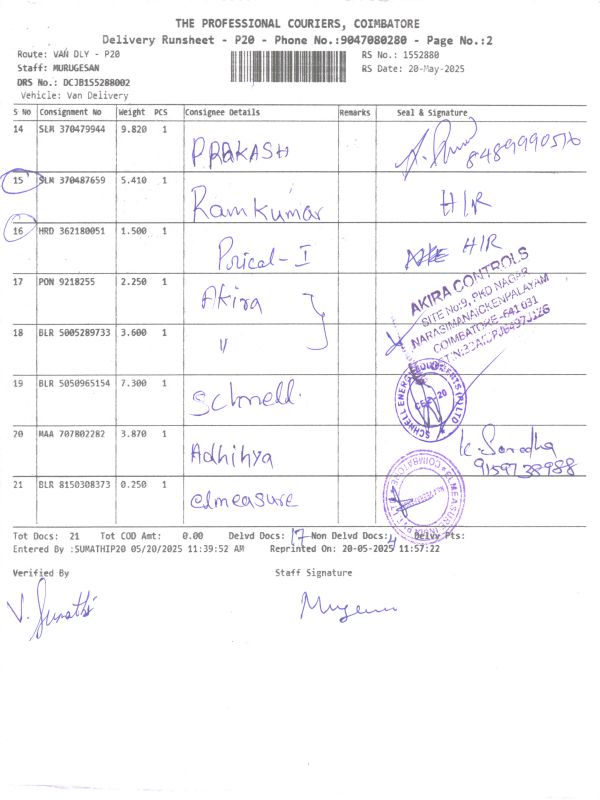 THE PROFESSIONAL COURIERS, COIMBATORE
Delivery Runsheet - P20 - Phone No.:9047080280 - Page No.:2
Route: VAN DLY - P20 RS No.: 1552880
Staff: MURUGESAN RS Date: 20-May-2025
DRS No.: DCJB155288002
Vehicle: Van Delivery
S No Consignment No Weight PCS Consignee Details Remarks Seal & Signature
14 SLM 370479944 9.820 1 PRAKASH 8489990576
15 SLM 370487659 5.410 1 Ramkumar H/R
16 HRD 362180051 1.500 1 - I H/R
17 PON 9218255 2.250 1 Akira
AKIRA CONTROLS
SITE No:9, PKD NAGAR
NARASIMANAICKENPALAYAM
COIMBATORE-641 031
18 BLR 5005289733 3.600 1 "
19 BLR 5050965154 7.300 1 Schnell.
SCHNELL ENERGY (P) LTD
CBE-20
20 MAA 707802282 3.870 1 Adhihya K. Saradha
9159738988
21 BLR 8150308373 0.250 1 elmeasure
ELMEASURE INDIA PVT LTD COIMBATORE
Tot Docs: 21 Tot COD Amt: 0.00 Delvd Docs: 17 Non Delvd Docs: 4 Delvy Pts:
Entered By :SUMATHIP20 05/20/2025 11:39:52 AM Reprinted On: 20-05-2025 11:57:22
Verified By Staff Signature
V. Sumathi